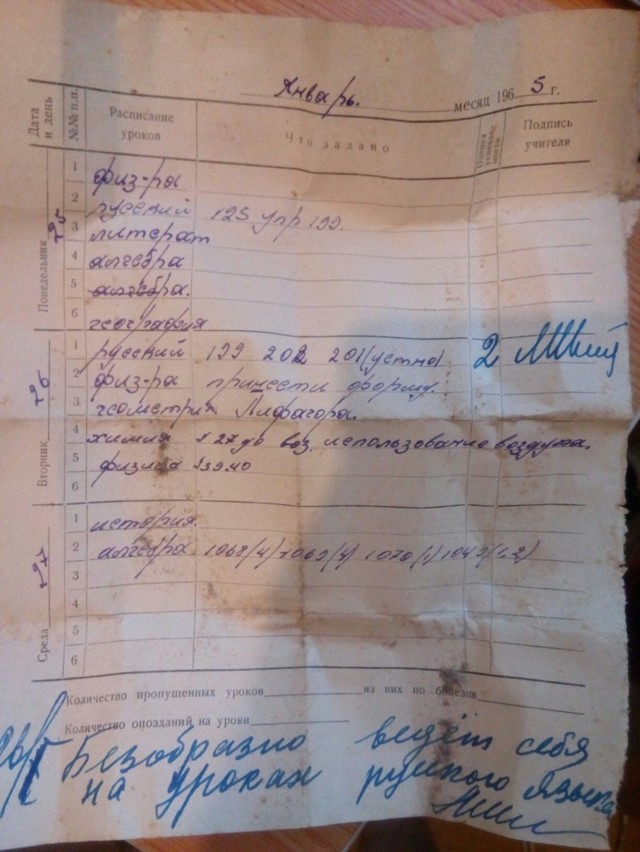 Январь. месяц 1965 г.
Дата и день №№ п.п. Расписание уроков Что задано Оценка успеваемости Подпись учителя
Понедельник 25
1 физ-ра
2 русский 125 упр 199.
3 литерат
4 алгебра
5 алгебра.
6 география
Вторник 26
1 русский 199 202 201 (устно) 2
2 физ-ра принести форму.
3 геометрия Пифагора.
4 химия § 27 до воз. использование воздуха.
5 физика § 39.40
6
Среда 27
1 история.
2 алгебра 1068(4) 1069(4) 1070(1) 1047(1,2)
3
4
5
6
Количество пропущенных уроков из них по болезни
Количество опозданий на уроки
26/I Безобразно ведёт себя
на уроках русского языка